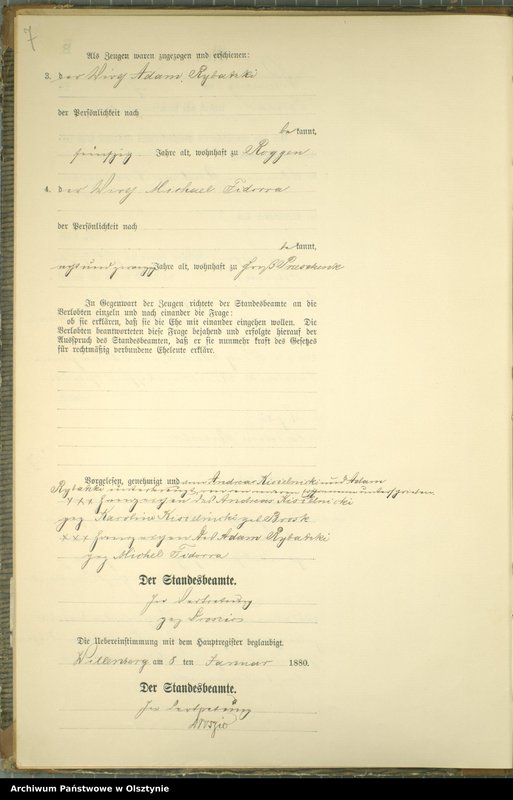 7
Als Zeugen waren zugezogen und erschienen:
3. der Wirth Adam Rybatzki
der Persönlichkeit nach
bekannt,
fünfzig Jahre alt, wohnhaft zu Roggen
4. der Wirth Michael Fidorra
der Persönlichkeit nach
bekannt,
Jahre alt, wohnhaft zu Groß
In Gegenwart der Zeugen richtete der Standesbeamte an die
Verlobten einzeln und nach einander die Frage:
ob sie erklären, daß sie die Ehe mit einander eingehen wollen. Die
Verlobten beantworteten diese Frage bejahend und erfolgte hierauf der
Ausspruch des Standesbeamten, daß er sie nunmehr kraft des Gesetzes
für rechtmäßig verbundene Eheleute erkläre.
Vorgelesen, genehmigt und Andreas Kieselnicki und Adam
Rybatzki
+++ Handzeichen des Andreas Kieselnicki
gez Karoline geb
+++ Handzeichen des Adam Rybatzki
gez Michel Fidorra
Der Standesbeamte.
In Vertretung
gez
Die Uebereinstimmung mit dem Hauptregister beglaubigt.
Willenberg am 8 ten Januar 1880.
Der Standesbeamte.
In Vertretung
Archiwum Państwowe w Olsztynie